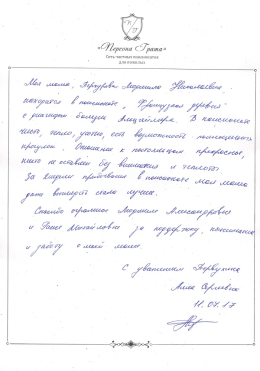 «Персона Грата»
Сеть частных пансионатов
для пожилых
Моя мама, Людмила Николаевна
находится в пансионате "Французская деревня"
с диагнозом болезнь Альцгеймера. В пансионате
чисто, тепло, уютно, есть возможность полноценных
прогулок. Отношение к постояльцам прекрасное,
никого не оставляют без внимания и
За время пребывания в пансионате, моя мама
даже выглядеть стала лучше.
Спасибо огромное Людмиле Александровне
и Михайловне за поддержку, понимание
и заботу о моей маме.
С уважением
Алла
11.04.17